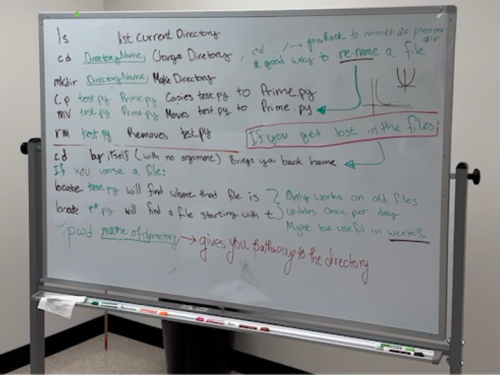 ls list Current Directory
cd DirectoryName, Change Diretory, cd ../ → goes back to immediate previous dir
mkdir DirectoryName, Make Directory a good way to re-name a file
Cp test.py Prime.py Copies test.py to Prime.py
mv test.py Prime.py Moves test.py to Prime.py
rm test.py Removes test.py
If you get lost in the files:
cd by itself (with no argument) Brings you back home
If You loose a file:
locate test.py will find where that file is } Only works on old files
locate t*.py will find a file starting with t } updates once per day.
Might be useful in weeks
pwd name of directory → gives you pathway to the directory